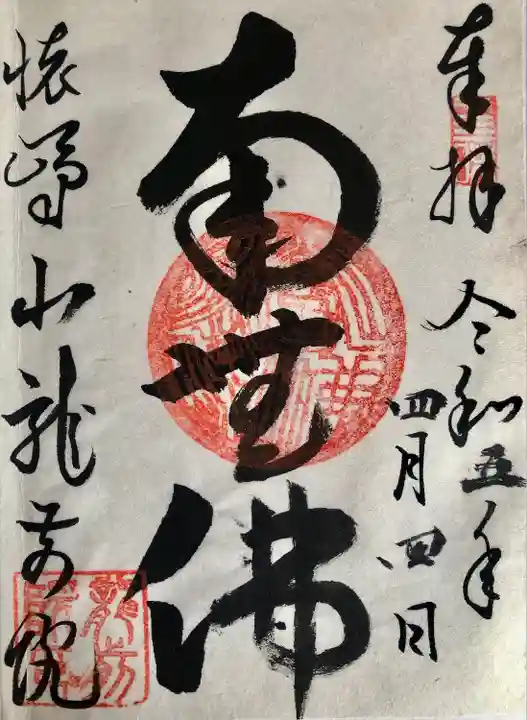 奉拝
令和五年
四月四日
南無佛
懐嶋山龍前院